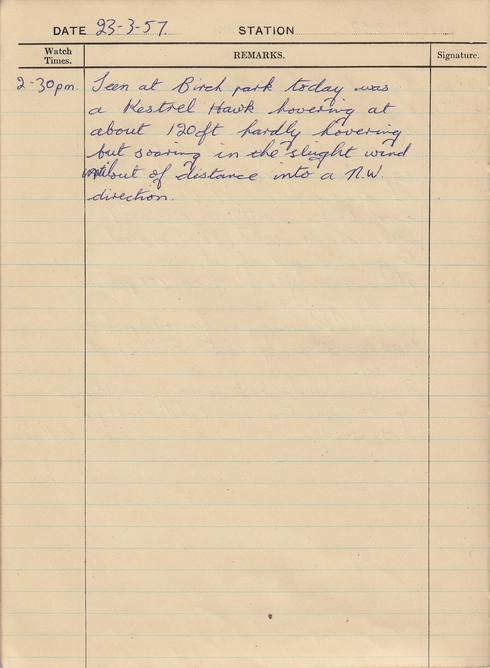 DATE 23-3-57. STATION
Watch Times. REMARKS. Signature.
2-30pm. Seen at Birch park today was
a Kestrel Hawk hovering at
about 120ft hardly hovering
but soaring in the slight wind
until out of distance into a N.W.
direction.